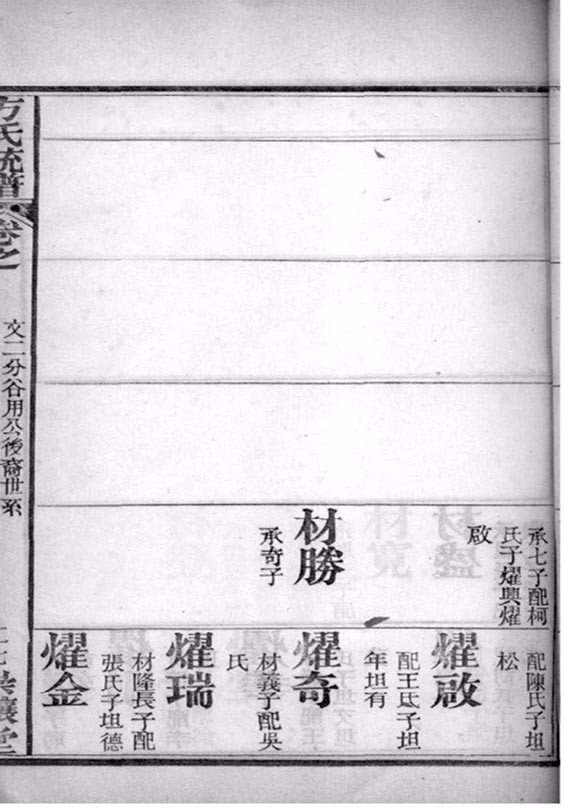 承七子配柯
氏子燿興燿
啟
材勝
承奇子
配陳氏子坦
松
燿啟
配王氏子坦
年坦有
燿奇
材義子配吳
氏
燿瑞
材隆長子配
張氏子坦德
燿金
方氏統譜
卷之
文二分谷用公後裔世系